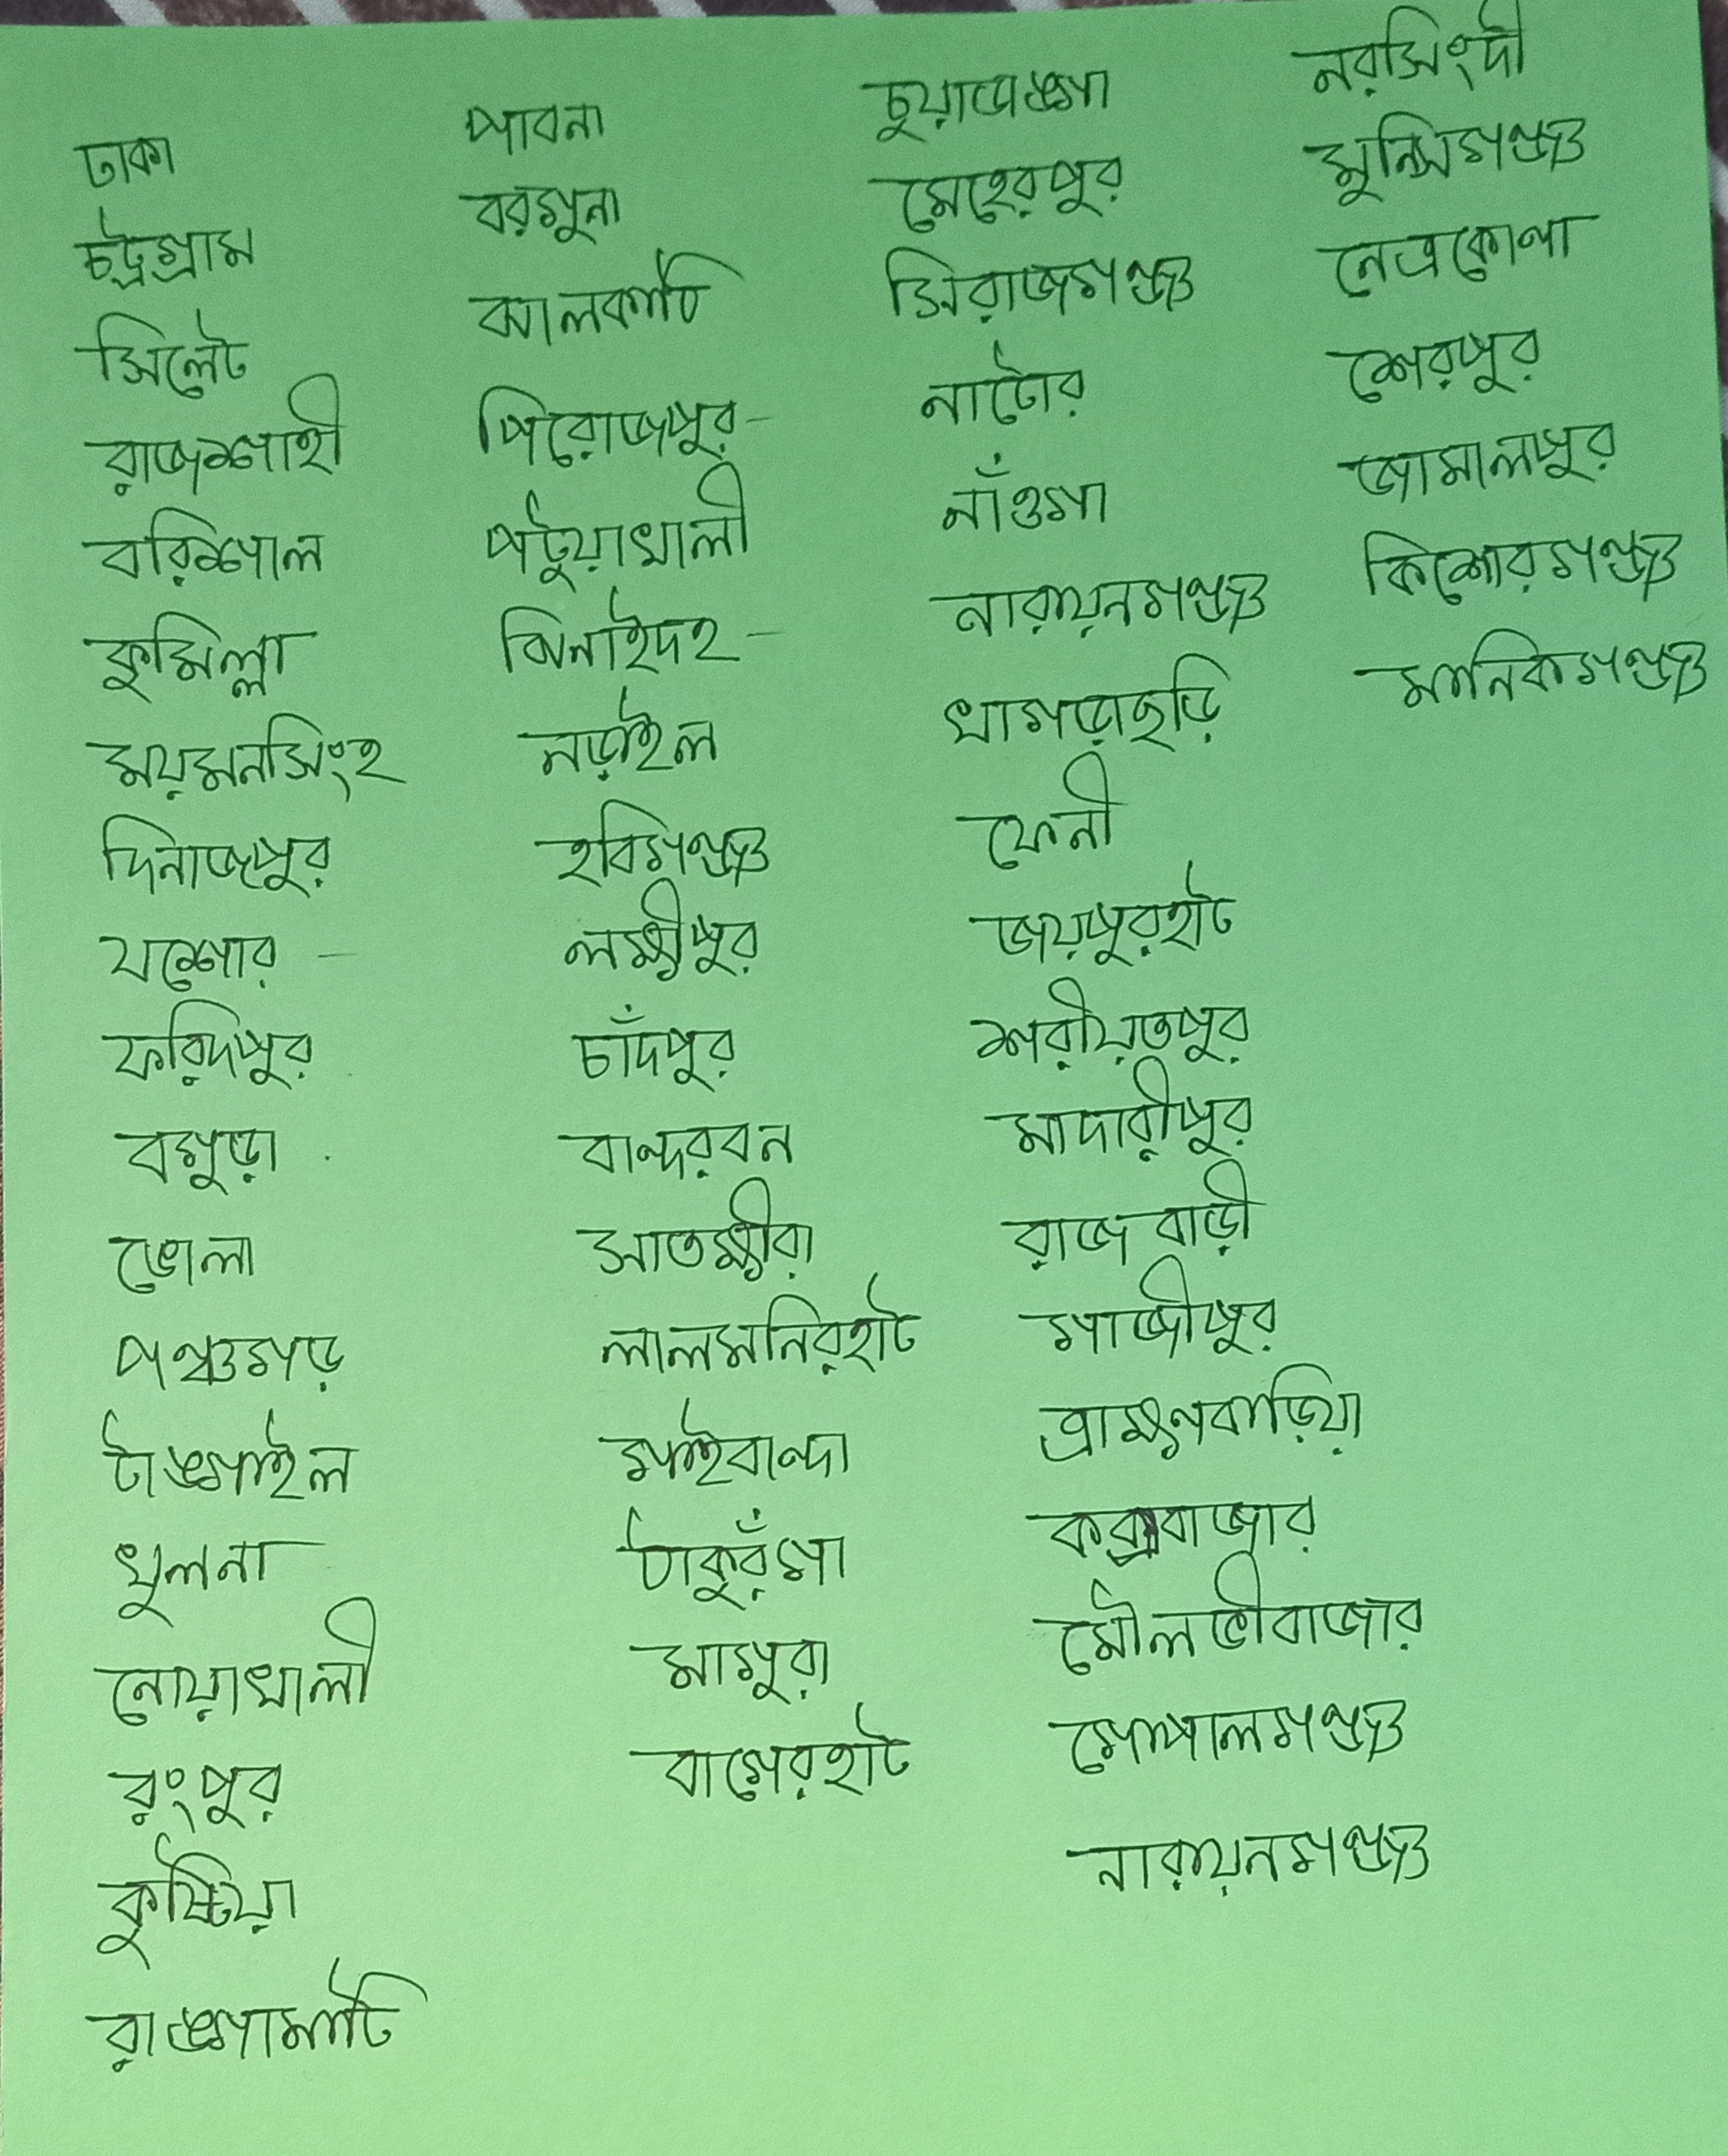 ঢাকা
চট্রগ্রাম
সিলেট
রাজশাহী
বরিশাল
কুমিল্লা
ময়মনসিংহ
দিনাজপুর
যশোর -
ফরিদপুর
বগুড়া
ভোলা
পঞ্চগড়
টাঙ্গাইল
খুলনা
নোয়াখালী
রংপুর
কুষ্টিয়া
রাঙ্গামাটি
পাবনা
বরগুনা
ঝালকাটি
পিরোজপুর -
পটুয়াখালী
ঝিনাইদহ -
নড়াইল
হবিগঞ্জ
লক্ষীপুর
চাঁদপুর
বান্দরবন
সাতক্ষীরা
লালমনিরহাট
গাইবান্দা
ঠাকুরঁগা
মাগুরা
বাগেরহাট
চুয়াডাঙ্গা
মেহেরপুর
সিরাজগঞ্জ
নাটোর
নাঁওগা
নারায়নগঞ্জ
খাগড়াছড়ি
ফেনী
জয়পুরহাট
শরীয়তপুর
মাদারীপুর
রাজবাড়ী
গাজীপুর
ব্রাহ্মণবাড়িয়া
কক্সবাজার
মৌলভীবাজার
গোপালগঞ্জ
নারায়নগঞ্জ
নরসিংদী
মুন্সিগঞ্জ
নেত্রকোণা
শেরপুর
জামালপুর
কিশোরগঞ্জ
মানিকগঞ্জ